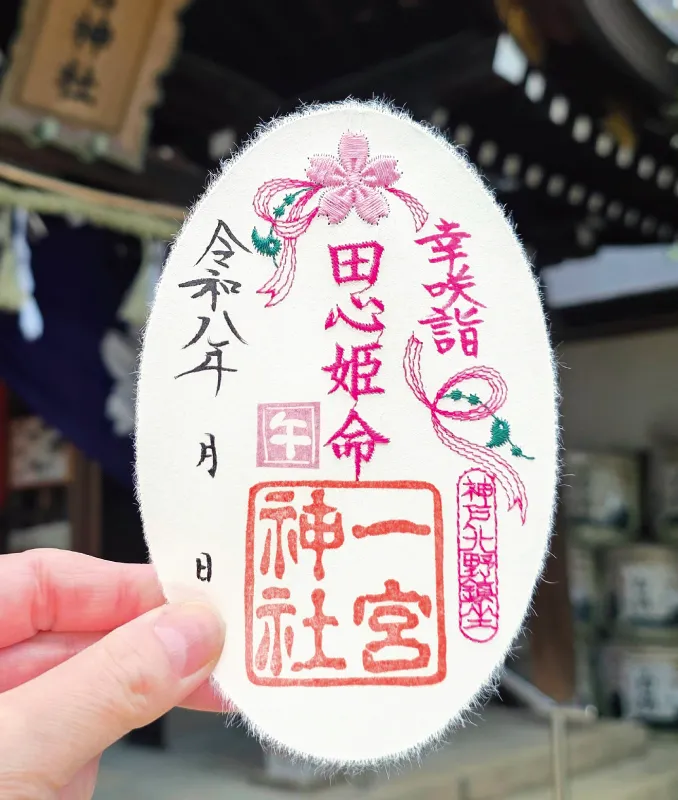 幸咲詣
神戸北野鎮坐
田心姫命
一宮
神社
午
令和八年
月
日
神社